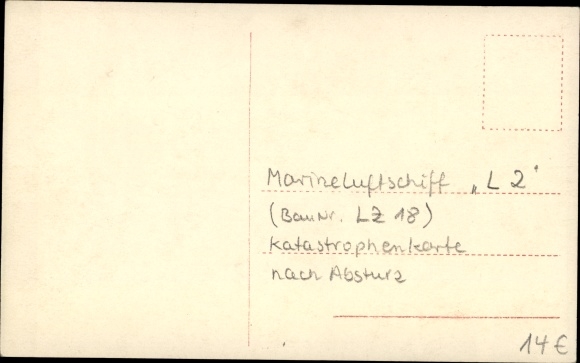 Marineluftschiff „L 2“
(BauNr. LZ 18)
Katastrophenkarte
nach Absturz
14 €